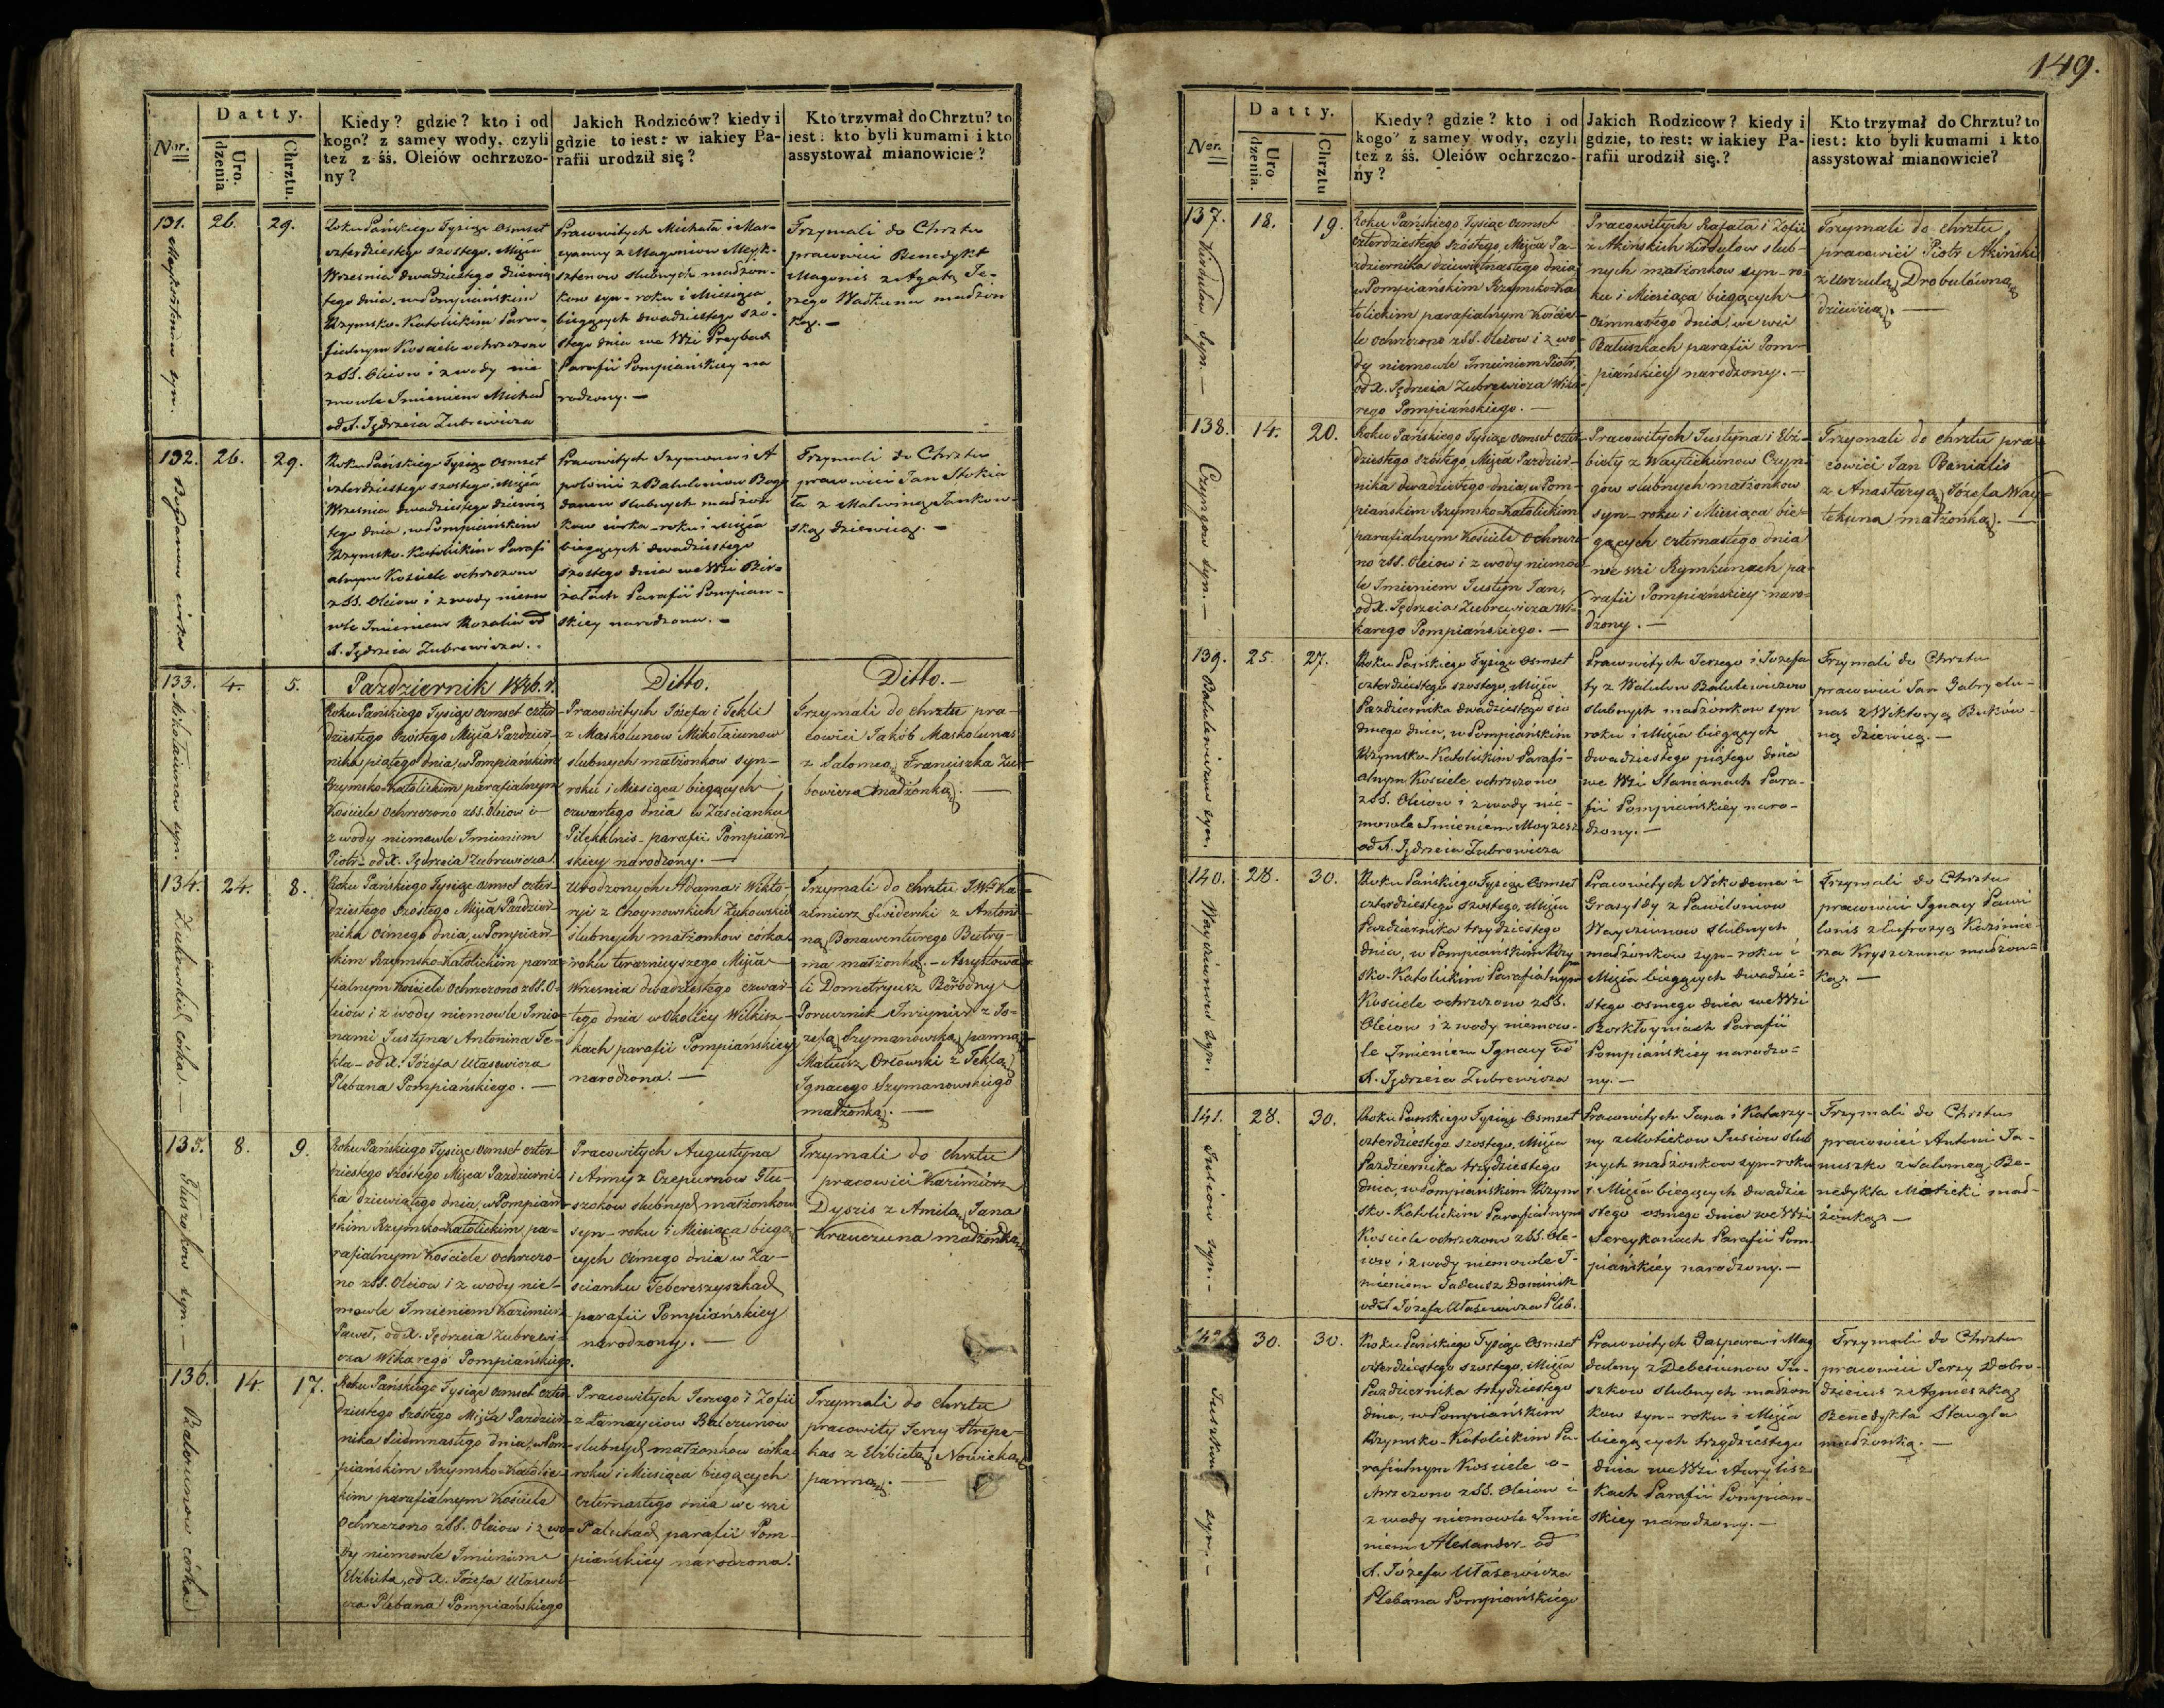 149.
Datty.
Ner.
Uro.
dzenia
Chrztu.
Kiedy? gdzie? kto i od
kogo? z samey wody, czyli
tez z śś. Oleiów ochrzczo-
ny?
Jakich Rodziców? kiedy i
gdzie to iest: w iakiey Pa-
rafii urodził się?
Kto trzymał do Chrztu? to
iest: kto byli kumami i kto
assystował mianowicie?
131.
syn.
26.
29.
Roku Pańskiego Tysiąc Osmset
czterdziestego szostego, Mięsia
Wrzesnia dwadziestego dziewią
tego dnia, w Pompiańskim
Rzymsko-Katolickim Para-
fialnym Kosciele ochrzczono
z SS. Oleiow i z wody nie
mowle Imieniem Michał
od X. Jędrzeia Zubrewicza
Pracowitych Michała i Mar-
cyanny z Magoniow Meyk-
sztenow slubnych małżon-
kow syn - roku i Miesiąca
biegących dwadziestego szo-
stego dnia we Wsi
Parafii Pompiańskiey na
rodzony. -
Trzymali do Chrztu
pracowici Benedykt
Magonis z Agatą Je-
rzego Waśkuna małżon
ką. -
132.
Bogdanow córka
26.
29.
Roku Pańskiego Tysiąc Osmset
czterdziestego szostego, Mięsia
Wrzesnia dwadziestego dziewią
tego dnia, w Pompiańskim
Rzymsko-Katolickim Parafi
alnym Kosciele ochrzczono
z SS. Oleiow i z wody niemo
wle Imieniem Rozalia od
X. Jędrzeia Zubrewicza.
Pracowitych Szymona i A
polonii z Balulisow Bog
danow slubnych małżon
kow córka - roku i Mięsia
biegących dwadziestego
szostego dnia we Wsi Bir-
załach Parafii Pompian-
skiey narodzona. -
Trzymali do Chrztu
pracowici Jan
z Malwiną Jankow-
ską dziewicą. -
133.
Mikołaiunow syn.
4.
5.
Pazdziernik 1846. r.
Roku Pańskiego Tysiąc Osmset czter-
dziestego szóstego Mięsia Pazdzier-
nika piątego dnia, w Pompiańskim
Rzymsko-Katolickim parafialnym
Kosciele Ochrzczono z SS. Oleiow i
z wody niemowle Imieniem
Piotr - od X. Jędrzeia Zubrewicza.
Ditto.
Pracowitych Józefa i Tekli
z Maskolunow Mikołaiunow
slubnych małżonkow syn -
roku i Miesiąca biegących
czwartego dnia w Zascianku
Pilekalnis - parafii Pompian-
skiey narodzony. -
Ditto. -
Trzymali do chrztu pra-
cowici Jakób Maskolunas
z Salomeą Franciszka Zu-
bowicza małżonką. -
134.
Żukowskich córka. -
24.
8.
Roku Pańskiego Tysiąc Osmset czter-
dziestego szóstego Mięsia Pazdzier-
nika Osmego dnia, w Pompian-
skim Rzymsko-Katolickim para-
fialnym Kosciele Ochrzczono z SS. O-
leiow i z wody niemowle Imio-
nami Justyna Antonina Te-
kla - od X. Józefa Ułasewicza
Plebana Pompiańskiego. -
Urodzonych Adama i Wikto-
ryi z Choynowskich Żukowskich
slubnych małżonkow córka
roku teraznieyszego Mięsia
Wrzesnia dwadziestego czwar-
tego dnia w Okolicy Wilkisz-
kach parafii Pompiańskiey
narodzona. -
Trzymali do chrztu JW Ka-
zimierz Swiderski z Antoni-
ną Bonawenturego Butry-
ma małżonką. - Assystowa-
li Dometryusz Bezrodny
Porucznik Inzynier z Jo-
zefą Szymanowską panną,
Mateusz Orłowski z Teklą
Ignacego Szymanowskiego
małżonką. -
135.
Głuszokow syn. -
8.
9.
Roku Pańskiego Tysiąc Osmset czter-
dziestego szóstego Mięca Pazdzierni-
ka dziewiątego dnia, w Pompian-
skim Rzymsko-Katolickim pa-
rafialnym Kosciele ochrzczo-
no z SS. Oleiow i z wody nie-
mowle Imieniem Kazimierz
Paweł, od X. Jędrzeia Zubrewi-
cza Wikarego Pompiańskiego.
Pracowitych Augustyna
i Anny z Czepurnow Głu-
szokow slubnych małżonkow
syn - roku i Miesiąca biegą-
cych Osmego dnia w Za-
scianku Tebereszyszkach
parafii Pompiańskiey
narodzony. -
Trzymali do chrztu
pracowici Kazimierz
Dyszis z Amilą Jana
Krawczuna małżonką.
136.
Balczunow córka
14.
17.
Roku Pańskiego Tysiąc Osmset czter-
dziestego szóstego Mięsia Pazdzier-
nika Siedmnastego dnia, w Pom-
piańskim Rzymsko-Katolic-
kim parafialnym Kosciele
Ochrzczono z SS. Oleiow i z wo-
dy niemowle Imieniem
Elżbieta, od X. Józefa Ułasewi-
cza Plebana Pompiańskiego
Pracowitych Jerzego i Zofii
z Łamayciow Balczunow
slubnych małżonkow córka
roku i Miesiąca biegących
czternastego dnia we wsi
Palukach parafii Pom-
piańskiey narodzona.
Trzymali do chrztu
pracowity Jerzy Strepe-
kas z Elżbietą Nowicką
panną. -
Datty.
Ner.
Uro
dzenia.
Chrztu
Kiedy? gdzie? kto i od
kogo? z samey wody, czyli
też z śś. Oleiów ochrzczo-
ńy?
Jakich Rodzicow? kiedy i
gdzie, to iest: w iakiey Pa-
rafii urodził się.?
Kto trzymał do Chrztu? to
iest: kto byli kumami i kto
assystował mianowicie?
137.
Kurdulow Syn. -
18.
19.
Roku Pańskiego Tysiąc Osmset
czterdziestego szóstego, Mięsia Pa-
zdziernika dziewiętnastego dnia
w Pompiańskim Rzymsko Ka
tolickim parafialnym Koscie-
le Ochrzczono z SS. Oleiow i z wo-
dy niemowle Imieniem Piotr,
od X. Jędrzeia Zubrewicza Wika-
rego Pompiańskiego. -
Pracowitych Rafała i Zofii
z Akińskich Kurdulow slub-
nych małżonkow syn - ro-
ku i Miesiąca biegących -
Osmnastego dnia, we wsi
Batuszkach parafii Pom-
piańskiey narodzony. -
Trzymali do chrztu
pracowici Piotr Akinski
z Urszulą Drobulówną
dziewicą. -
138.
Czyngow syn. -
14.
20.
Roku Pańskiego Tysiąc Osmset czter-
dziestego szóstego, Mięsia Pazdzier-
nika dwadziestego dnia, w Pom-
piańskim Rzymsko-Katolickim
parafialnym Kosciele Ochrzczo-
no z SS. Oleiow i z wody niemow-
le Imieniem Justyn Jan,
od X. Jędrzeia Zubrewicza Wi-
karego Pompiańskiego. -
Pracowitych Justyna i Elż-
biety z Waytiekunow Czyn-
gow slubnych małżonkow
syn - roku i Miesiąca bie-
gących czternastego dnia
we wsi Rymkunach pa-
rafii Pompiańskiey naro-
dzony. -
Trzymali do chrztu pra
cowici Jan Banialis
z Anastazyą Józefa Way-
tekuna małżonką. -
139.
Balulewiczow syn.
25.
27.
Roku Pańskiego Tysiąc Osmset
czterdziestego szostego, Mięsia
Pazdziernika dwadziestego sio
dmego dnia, w Pompiańskim
Rzymsko-Katolickim Parafi-
alnym Kosciele ochrzczono
z SS. Oleiow i z wody nie-
mowle Imieniem Moyżesz
od X. Jędrzeia Zubrewicza
Pracowitych Jerzego i Jozefa
ty z Walulow Balulewiczow
slubnych małżonkow syn
roku i Mięsia biegących
dwadziestego piątego dnia
we Wsi Stanianach Para-
fii Pompiańskiey naro-
dzony. -
Trzymali do Chrztu
pracowici Jan Gabrielu-
nas z Wiktoryą Buków-
ną dziewicą. -
140.
Waydziunow syn.
28.
30.
Roku Pańskiego Tysiąc Osmset
czterdziestego szostego, Mięsia
Pazdziernika trzydziestego
dnia, w Pompiańskim Rzym
sko-Katolickim Parafialnym
Kosciele ochrzczono z SS.
Oleiow i z wody niemow-
le Imieniem Ignacy od
X. Jędrzeia Zubrewicza
Pracowitych Nikodema i
Grasyldy z Pawiloniow
Waydziunow slubnych
małżonkow syn - roku i
Mięsia biegących dwadzie-
stego osmego dnia we Wsi
Borkłoyniach Parafii
Pompiańskiey narodzo-
ny. -
Trzymali do Chrztu
pracowici Ignacy Pawi
lonis z Eufrozyą Kazimie-
rza Kryszczuna małżon-
ką. -
141.
Jusiow syn. -
28.
30.
Roku Pańskiego Tysiąc Osmset
czterdziestego szostego, Mięsia
Pazdziernika trzydziestego
dnia, w Pompiańskim Rzym
sko-Katolickim Parafialnym
Kosciele ochrzczono z SS. Ole-
iow i z wody niemowle I-
mieniem Tadeusz Dominik
od X. Józefa Ułasewicza Pleb.
Pracowitych Jana i Katarzy-
ny z Motiekow Jusiow slub
nych małżonkow syn - roku
i Mięsia biegących dwadzie
stego osmego dnia we Wsi
Sereykanach Parafii Pom-
piańskiey narodzony. -
Trzymali do Chrztu
pracowici Antoni Ja-
nuszko z Salomeą Be-
nedykta Motieki mał-
żonką. -
142.
Juszkow syn. -
30.
30.
Roku Pańskiego Tysiąc Osmset
czterdziestego szostego, Mięsia
Pazdziernika trzydziestego
dnia, w Pompiańskim
Rzymsko-Katolickim Pa-
rafialnym Kosciele o-
chrzczono z SS. Oleiow i
z wody niemowle Imie
niem Alexander - od
X. Józefa Ułasewicza
Plebana Pompiańskiego
Pracowitych Gaspara i Mag
daleny z Debesiunow Ju-
szkow slubnych małżon
kow syn - roku i Mięsia
biegących trzydziestego
dnia we Wsi Aurylisz
kach Parafii Pompian-
skiey narodzony. -
Trzymali do Chrztu
pracowici Jerzy Dobro-
dzieius z Agnieszką
Benedykta Staugła
małżonką. -